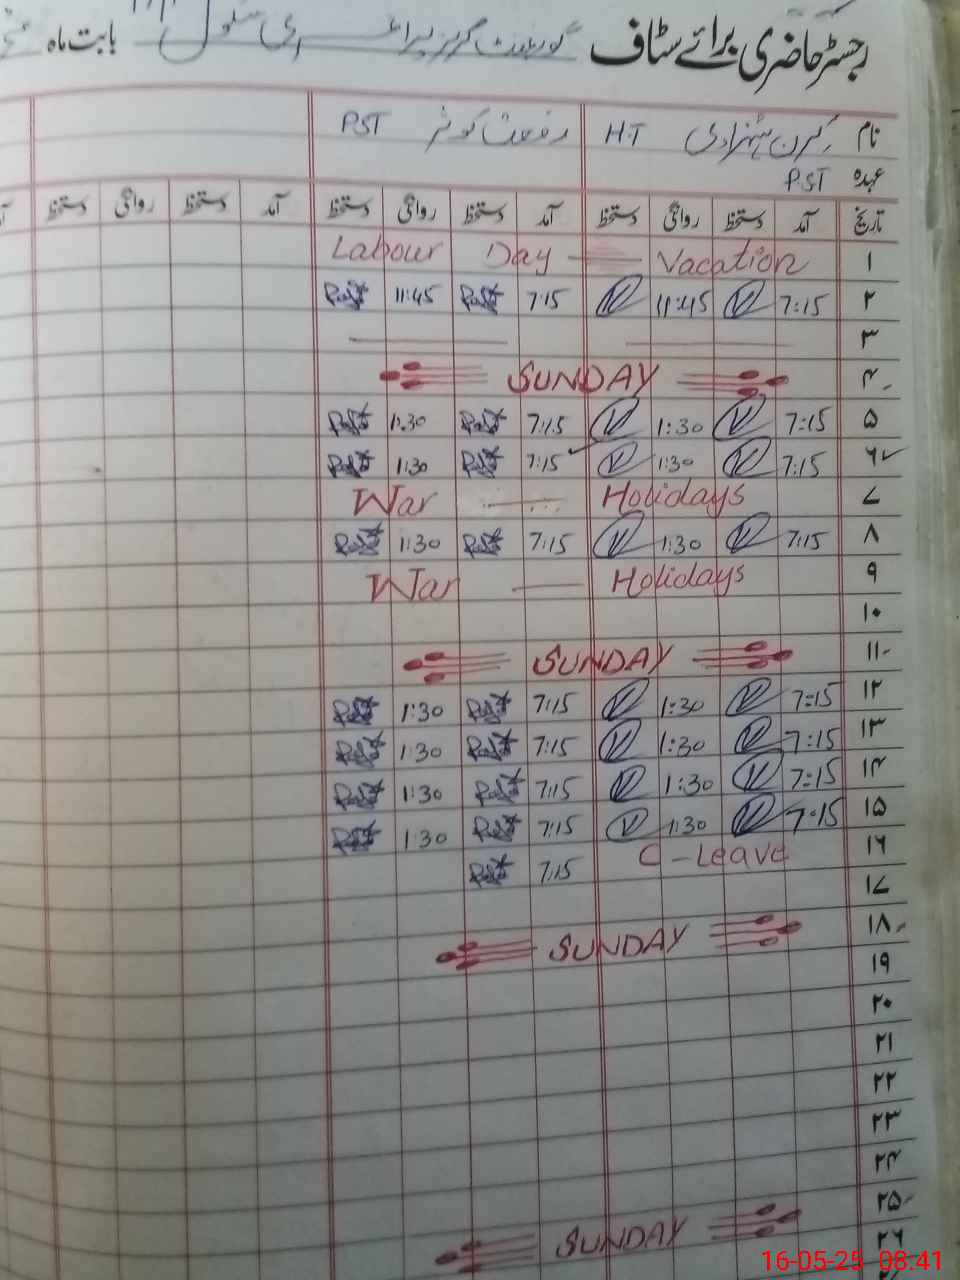 رجسٹر حاضری برائے سٹاف گورنمنٹ گرلز پرائمری سکول بابت ماہ
نام کرن شہزادی H.T رفعت کوثر PST
عہدہ PST
تاریخ آمد دستخط روانگی دستخط آمد دستخط روانگی دستخط آمد دستخط روانگی دستخط
۱ Labour Day Vacation
۲ 7:15 11:45 7:15 11:45
۳
۴ SUNDAY
۵ 7:15 1:30 7:15 1:30
۶ 7:15 1:30 7:15 1:30
۷ War Holidays
۸ 7:15 1:30 7:15 1:30
۹ War Holidays
۱۰
۱۱ SUNDAY
۱۲ 7:15 1:30 7:15 1:30
۱۳ 7:15 1:30 7:15 1:30
۱۴ 7:15 1:30 7:15 1:30
۱۵ 7:15 1:30 7:15 1:30
۱۶ C-Leave 7:15
۱۷
۱۸ SUNDAY
۱۹
۲۰
۲۱
۲۲
۲۳
۲۴
۲۵ SUNDAY
۲۶
16-05-25 08:41